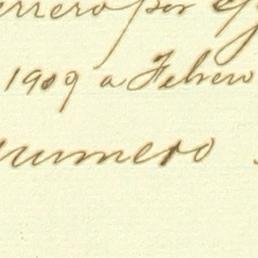 por
1909 a Febrero
numero